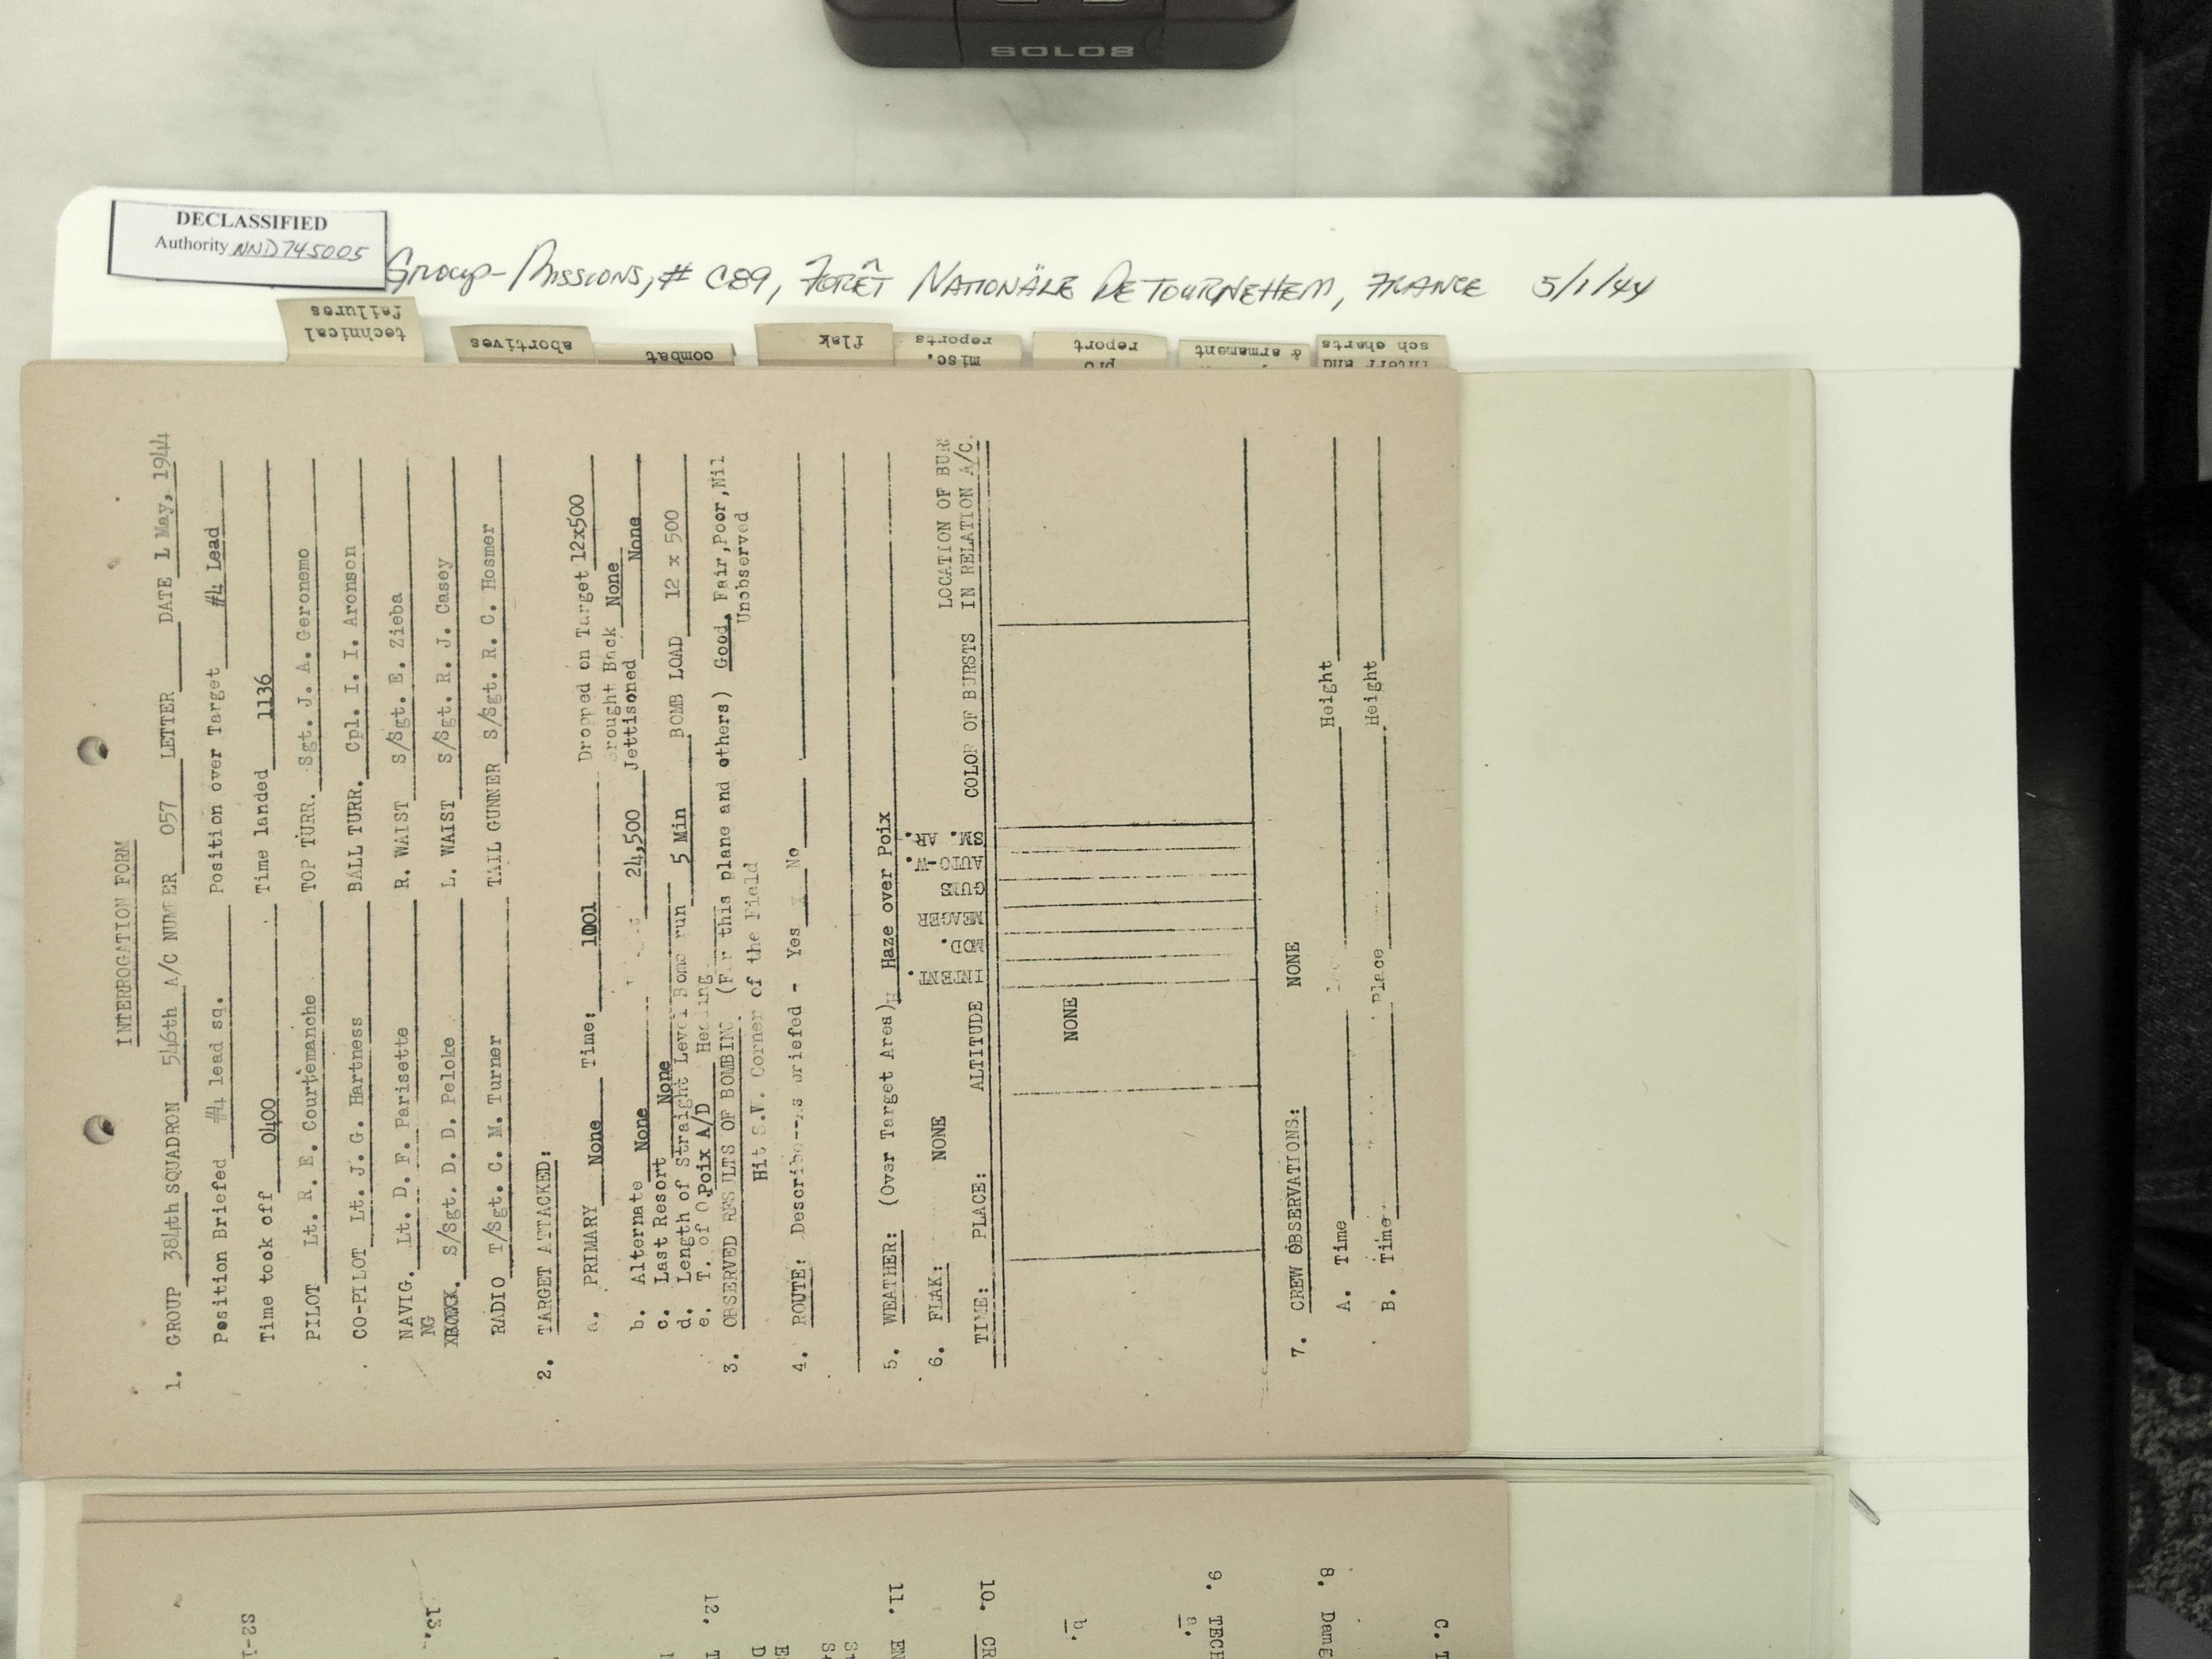 SOLO8
DECLASSIFIED
Authority NND745005
Group-Missions, # C89, Forêt Nationäle De Tournehem, France 5/1/44
technical
failures
abortives
combat
flak
misc.
reports
pro
report
& armament
Interr and
sch charts
INTERROGATION FORM
1. GROUP 384th SQUADRON 546th A/C NUMBER 057 LETTER DATE 1 May, 1944
Position Briefed #4 lead sq. Position over Target #4 Lead
Time took off 0400 Time landed 1136
PILOT Lt. R. E. Courtemanche TOP TURR. Sgt. J. A. Geronemo
CO-PILOT Lt. J. G. Hartness BALL TURR. Cpl. I. I. Aronson
NAVIG. Lt. D. F. Parisette R. WAIST S/Sgt. E. Zieba
NG
S/Sgt. D. D. Peloke L. WAIST S/Sgt. R. J. Casey
RADIO T/Sgt. C. M. Turner TAIL GUNNER S/Sgt. R. C. Hosmer
2. TARGET ATTACKED:
a. PRIMARY None Time: 1001 Dropped on Target 12x500
Brought Back None
b. Alternate None 24,500 Jettisoned None
c. Last Resort None
d. Length of Straight Level Bomb run 5 Min BOMB LOAD 12 x 500
e. T. of O. Poix A/D Heading
3. OBSERVED RESULTS OF BOMBING (For this plane and others) Good, Fair, Poor, Nil
Unobserved
Hit S.W. Corner of the Field
4. ROUTE: Describe--As briefed - Yes X No
5. WEATHER: (Over Target Area) Haze over Poix
6. FLAK: NONE
TIME: PLACE: ALTITUDE INTENT. MOD. MEAGER GUNS AUTO-W. SM. AR. COLOR OF BURSTS LOCATION OF BUR
IN RELATION A/C.
NONE
7. CREW OBSERVATIONS: NONE
A. Time Height
B. Time Place Height
C. T
8. Damag
9. TECH
a.
b.
10. CR
11. EN
12. T
13.
S2-1